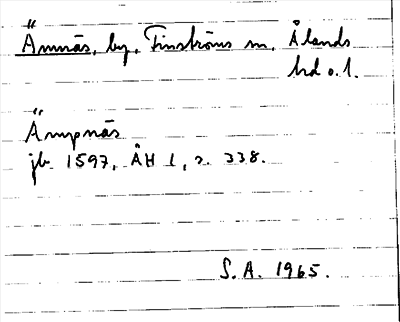 Ämnäs, by, Finströms sn, Ålands
hd o. l.
Ämpnäs
jb. 1597, ÅH 1, s. 338.
S. A. 1965.